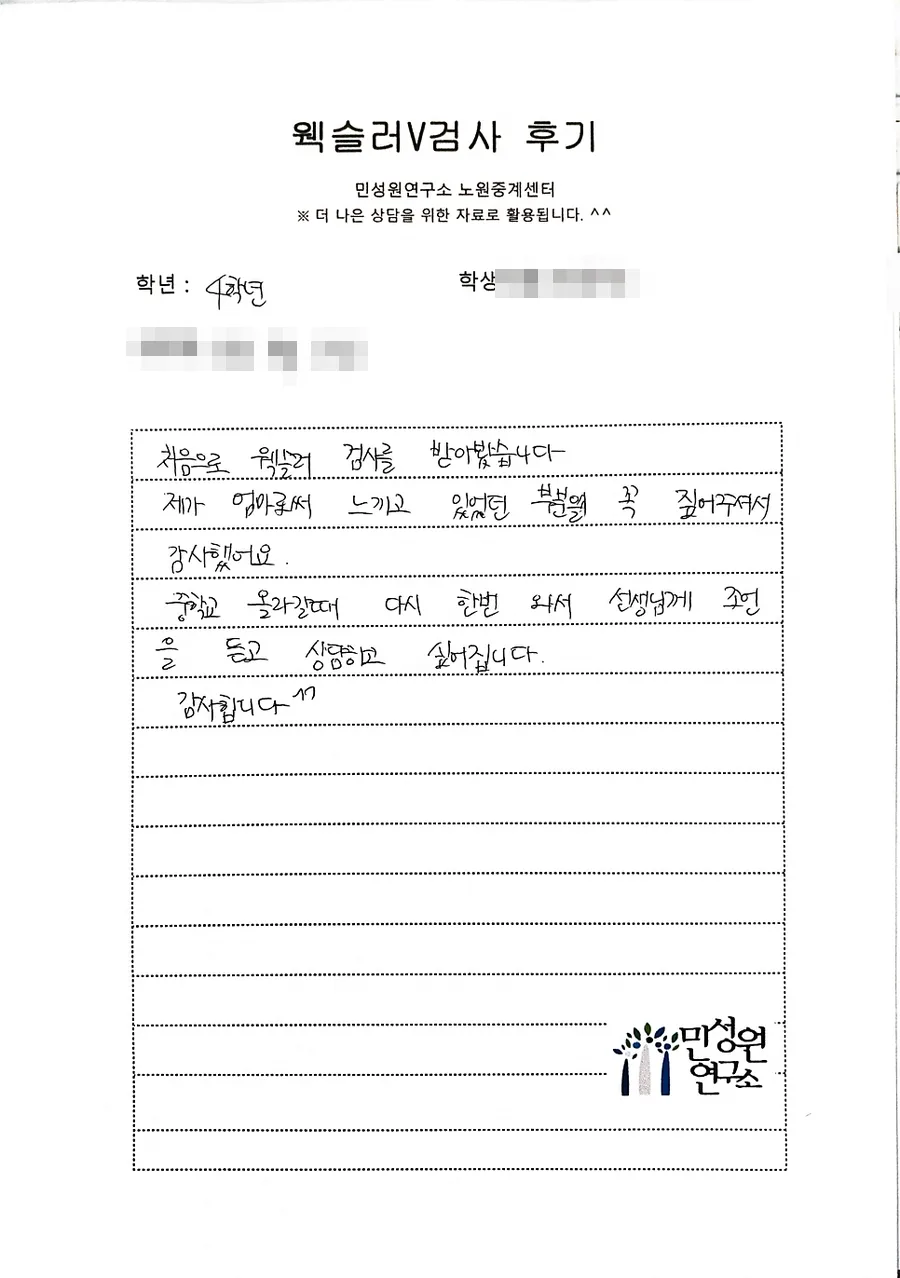 웩슬러V검사 후기
민성원연구소 노원중계센터
※ 더 나은 상담을 위한 자료로 활용됩니다. ^^
학년 : 4학년 학생
처음으로 웩슬러 검사를 받아봤습니다
제가 엄마로써 느끼고 있었던 부분을 꼭 짚어주셔서
감사했어요.
중학교 올라갈때 다시 한번 와서 선생님께 조언
을 듣고 상담하고 싶어집니다.
감사합니다^^
민성원
연구소